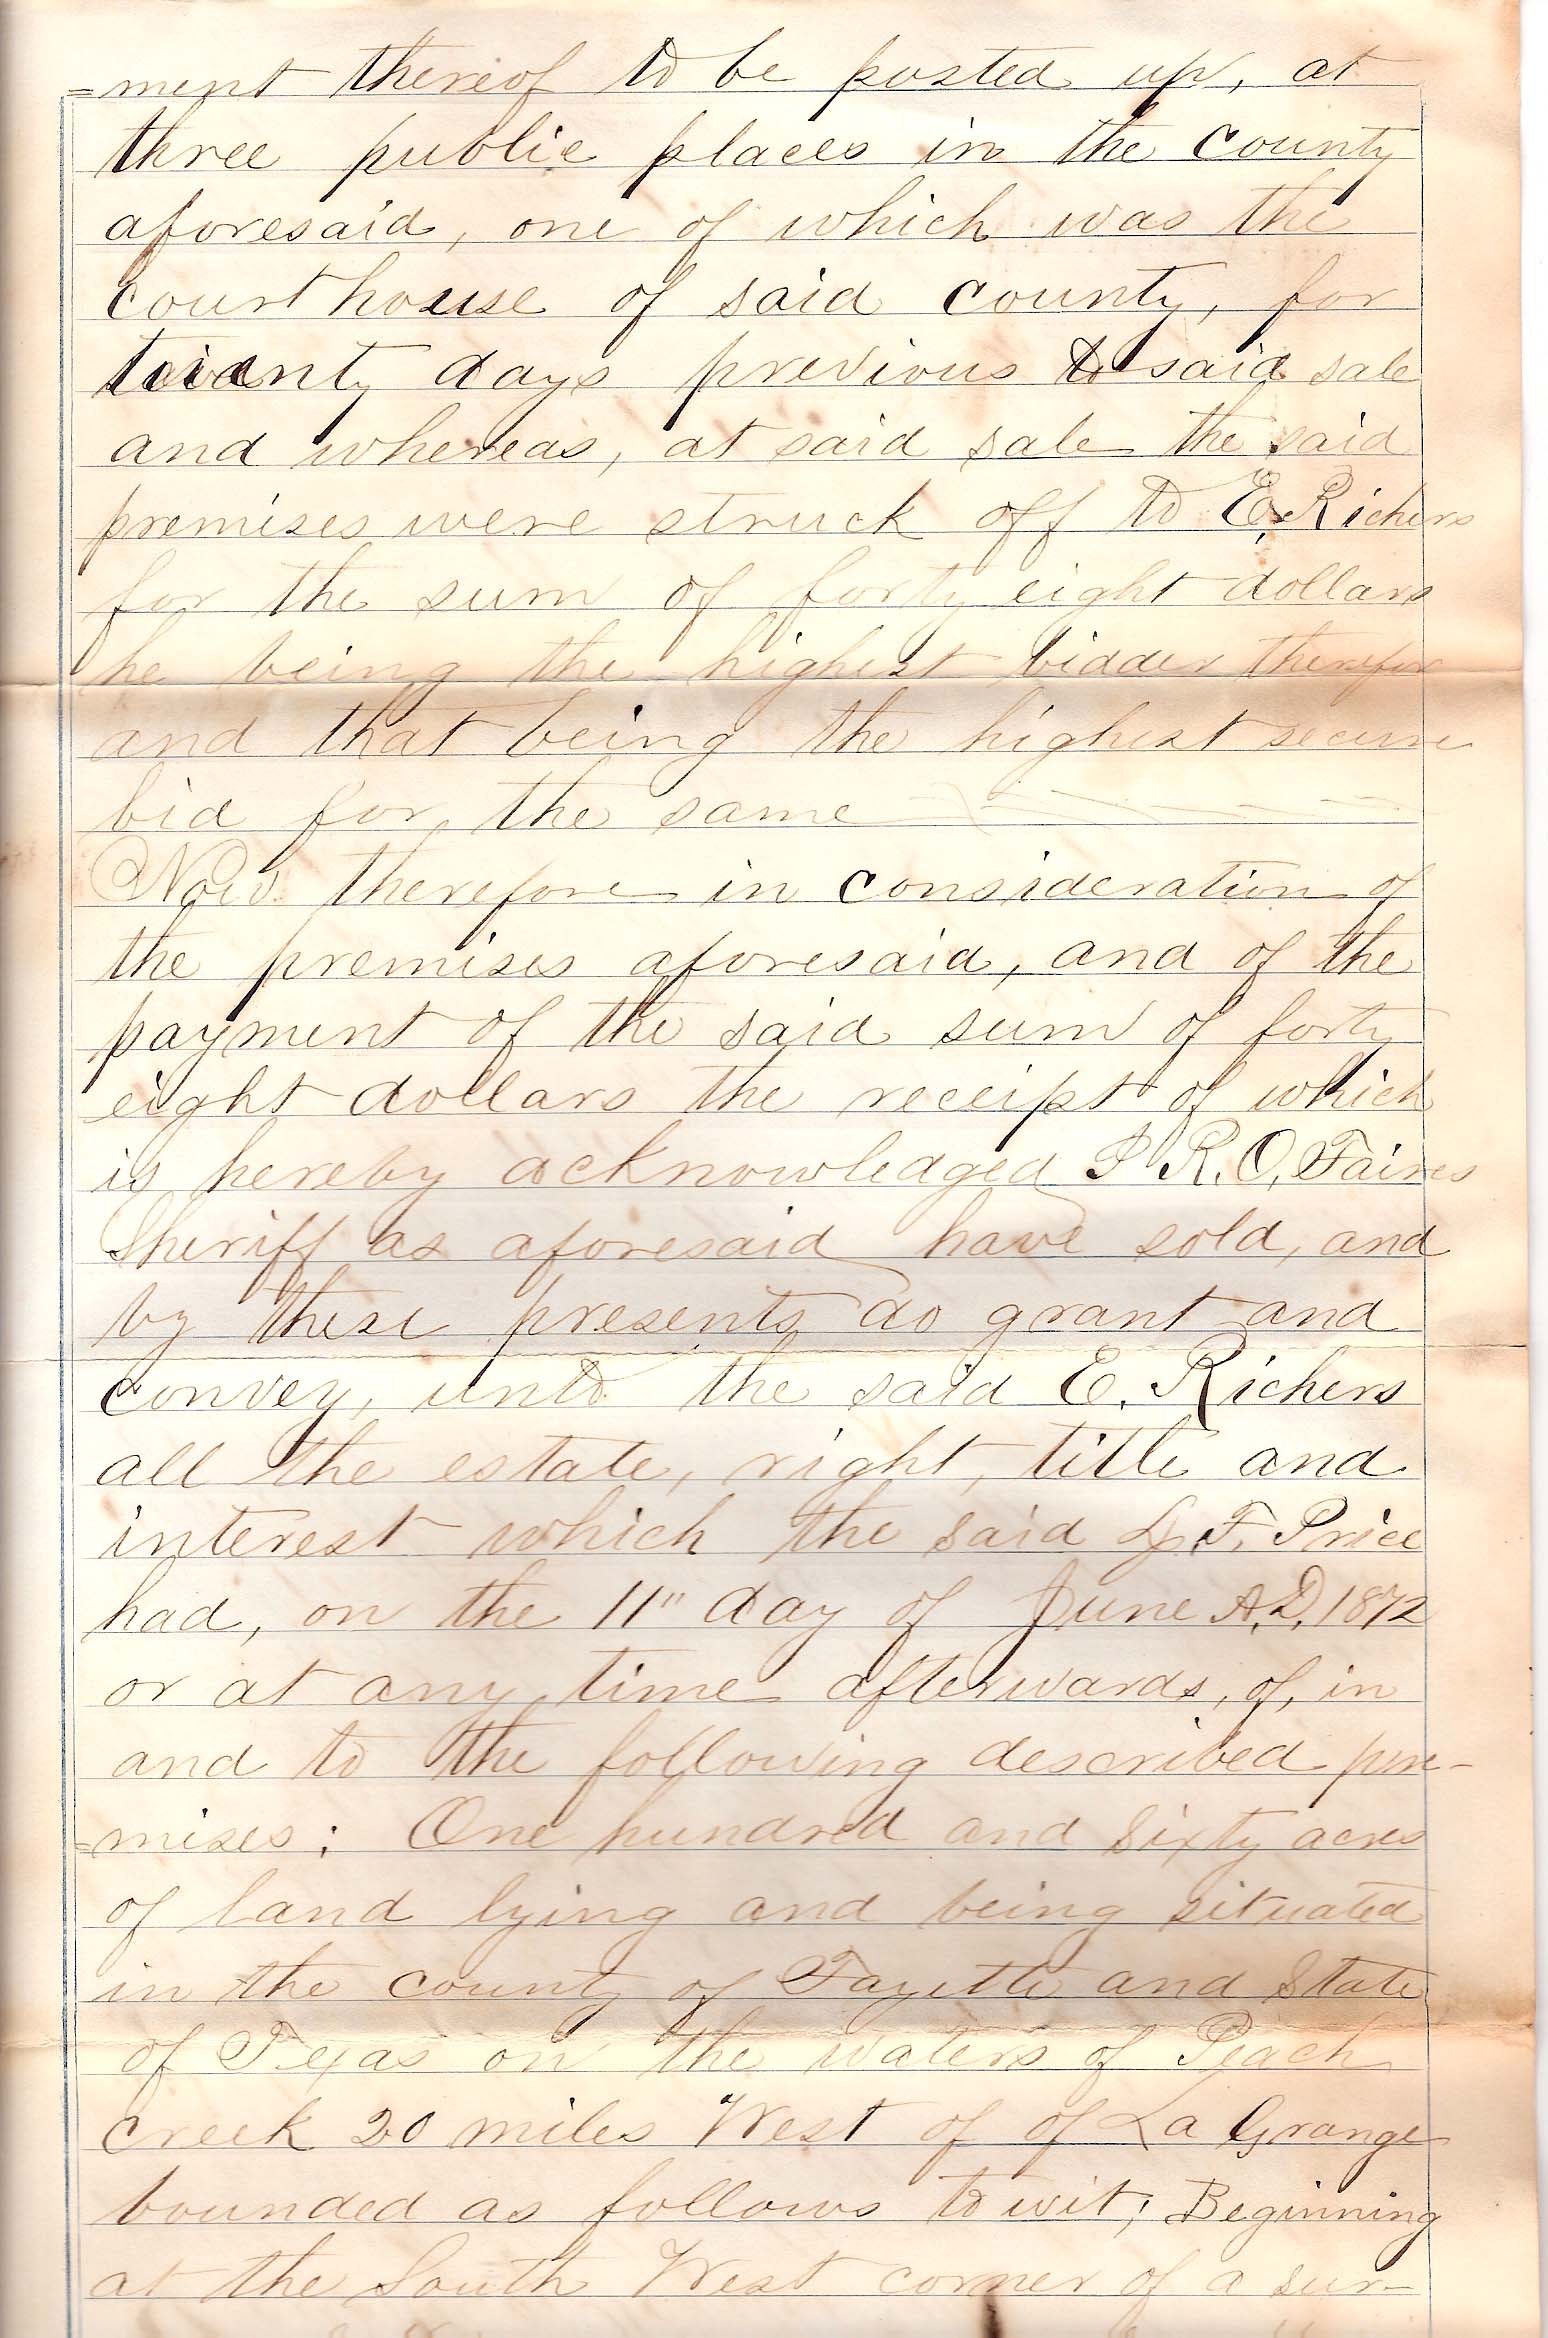 =ment thereof to be posted up, at
three public places in the county
aforesaid, one of which was the
courthouse of said county, for
twenty days previous to said sale
and whereas, at said sale the said
premises were struck off to E. Richers
for the sum of forty eight dollars
he being the highest bidder therefor
and that being the highest secure
bid for the same
Now therefore in consideration of
the premises aforesaid, and of the
payment of the said sum of forty
eight dollars the receipt of which
is hereby acknowledged I R. O. Faires
Sheriff as aforesaid have sold, and
by these presents do grant and
convey, unto the said E. Richers
all the estate, right, title and
interest which the said F. Price
had, on the 11" day of June A.D. 1872
or at any time afterwards, of, in
and to the following described pre-
=mises: One hundred and sixty acres
of land lying and being situated
in the county of Fayette and State
of Texas on the waters of Peach
creek 20 miles West of of La Grange
bounded as follows to wit; Beginning
at the South West corner of a sur-